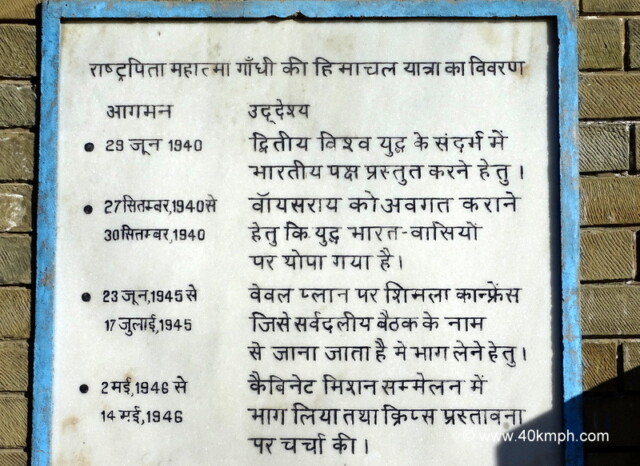 राष्ट्रपिता महात्मा गाँधी की हिमाचल यात्रा का विवरण
आगमन उद्देश्य
• 29 जून 1940 द्वितीय विश्व युद्ध के संदर्भ में
भारतीय पक्ष प्रस्तुत करने हेतु।
• 27 सितम्बर,1940 से वॉयसराय को अवगत कराने
30 सितम्बर,1940 हेतु कि युद्ध भारत-वासियों
पर थोपा गया है।
• 23 जून,1945 से वेवल प्लान पर शिमला कान्फ्रेंस
17 जुलाई,1945 जिसे सर्वदलीय बैठक के नाम
से जाना जाता है मे भाग लेने हेतु।
• 2 मई,1946 से कैबिनेट मिशन सम्मेलन में
14 मई,1946 भाग लिया तथा क्रिप्स प्रस्तावना
पर चर्चा की।
© www.40kmph.com